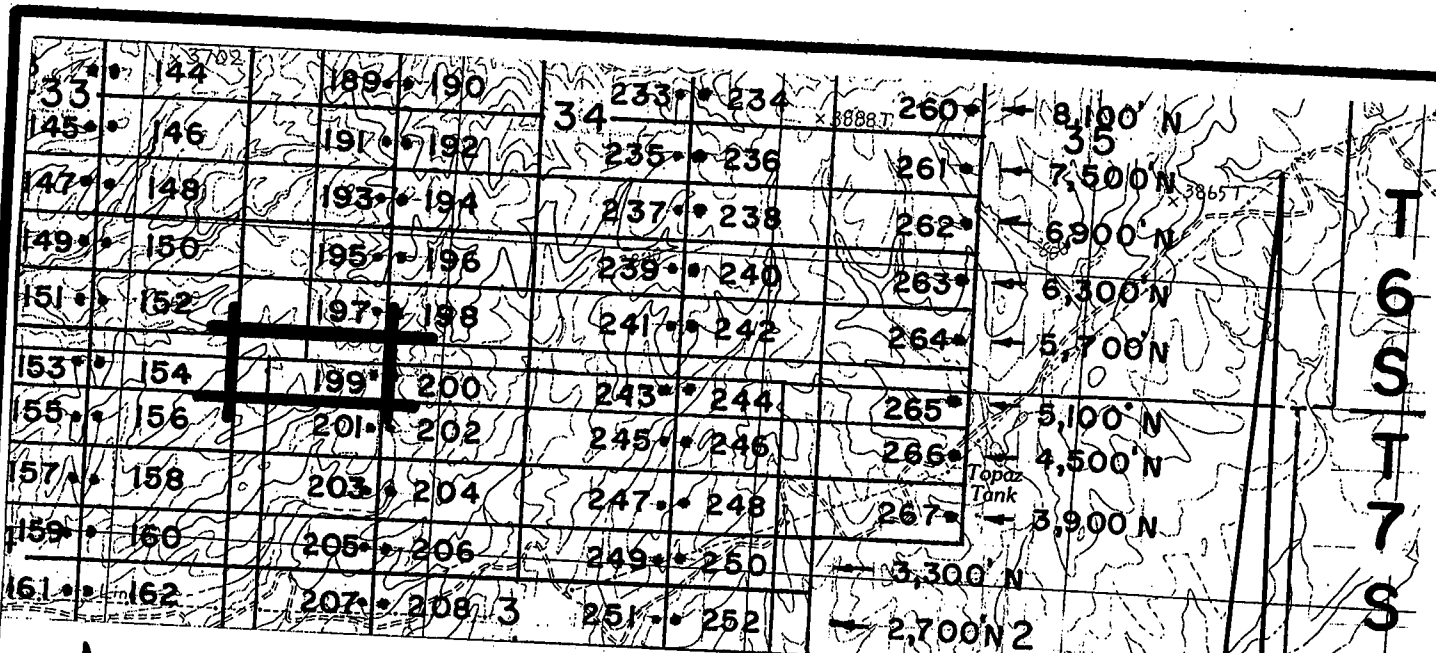 144 × 3702 189 190 233 234 260 8,100' N
33 34 × 3888T 35
145 146 191 192 235 236 261 7,500' N
147 148 193 194 237 238 262 6,900' N × 3865T
149 150 195 196 239 240 263 6,300' N
151 152 197 198 241 242 264 5,700' N
153 154 199 200 243 244 265 5,100' N
155 156 201 202 245 246 266 4,500' N
Topaz
Tank
157 158 203 204 247 248 267 3,900' N
159 160 205 206 249 250 3,300' N
161 162 207 208 3 251 252 2,700' N 2
T
6
S
T
7
S